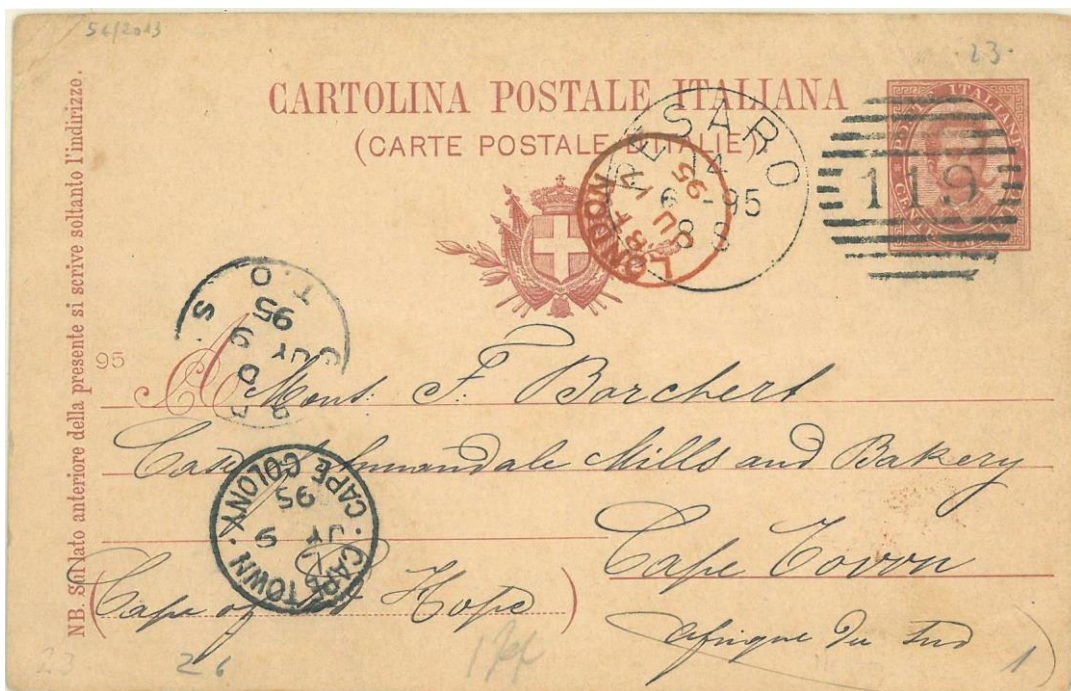 54/2013
23.
CARTOLINA POSTALE ITALIANA
(CARTE POSTALE D'ITALIE)
NB. Sul lato anteriore della presente si scrive soltanto l'indirizzo.
PESARO
6 - 95
8 S
119
POSTE ITALIANE
LONDON
JU 17
95
95
JY 9
95
T.O.
A Mons. F. Borchert
Annandale Mills and Bakery
Cape Town
(Cape of Hope)
Afrique du Sud
CAPE TOWN · CAPE COLONY
JY 9
95
23
26
1